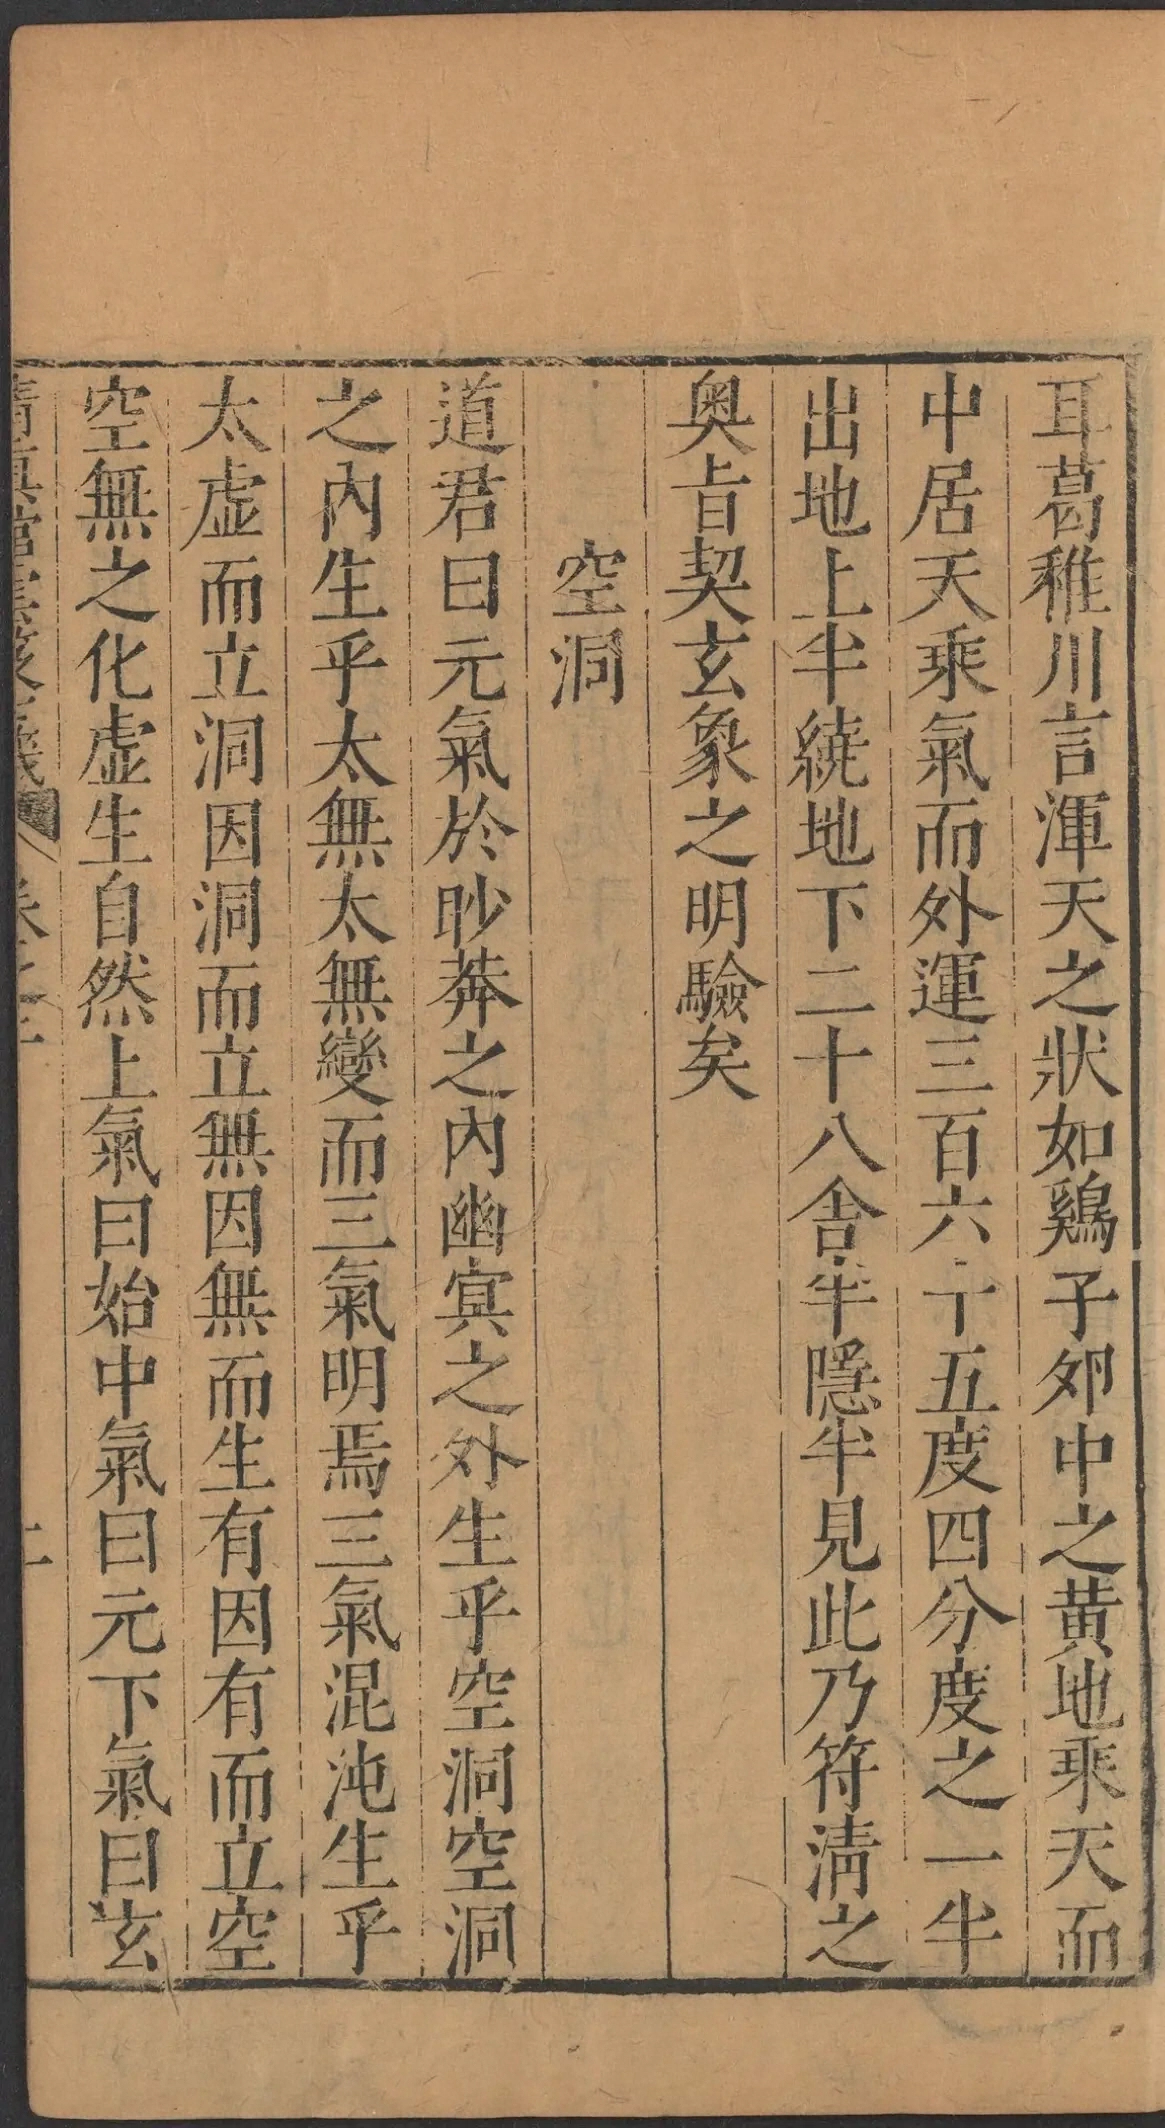 耳葛稚川言渾天之狀如鷄子夘中之黄地乘天而
中居天乘氣而外運三百六十五度四分度之一半
出地上半繞地下二十八舎半隱半見此乃符清之
奥旨契玄象之明驗矣
空洞
道君曰元氣於眇莽之內幽㝠之外生乎空洞空洞
之內生乎太無太無變而三氣明焉三氣混沌生乎
太虚而立洞因洞而立無因無而生有因有而立空
空無之化虚生自然上氣曰始中氣曰元下氣曰玄